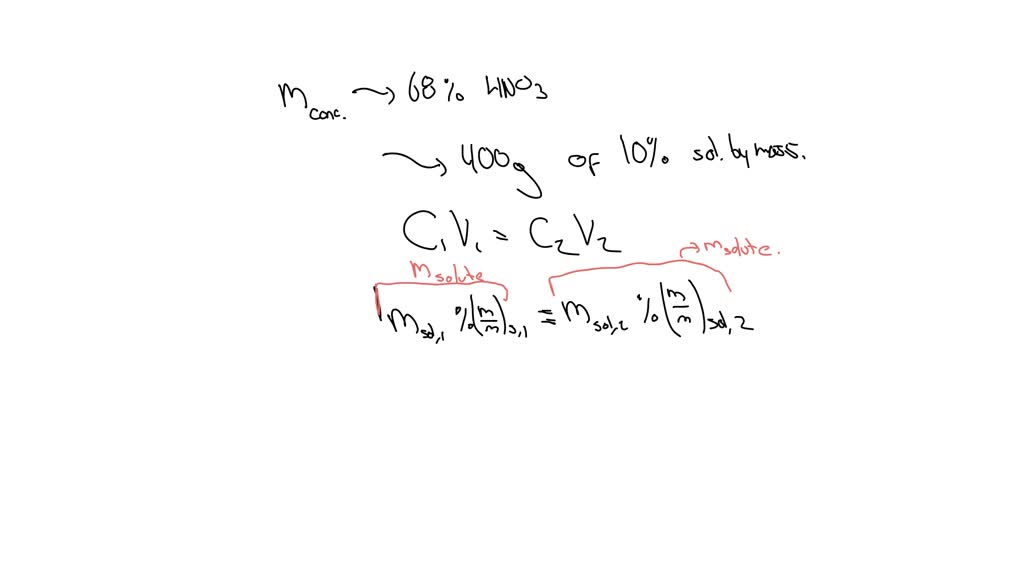 m conc. → 68% HNO3
→ 400g of 10% sol. by mass.
C1V1 = C2V2
msolute → msolute.
msol,1 %(m/m)s,1 = msol,2 %(m/m)sol,2